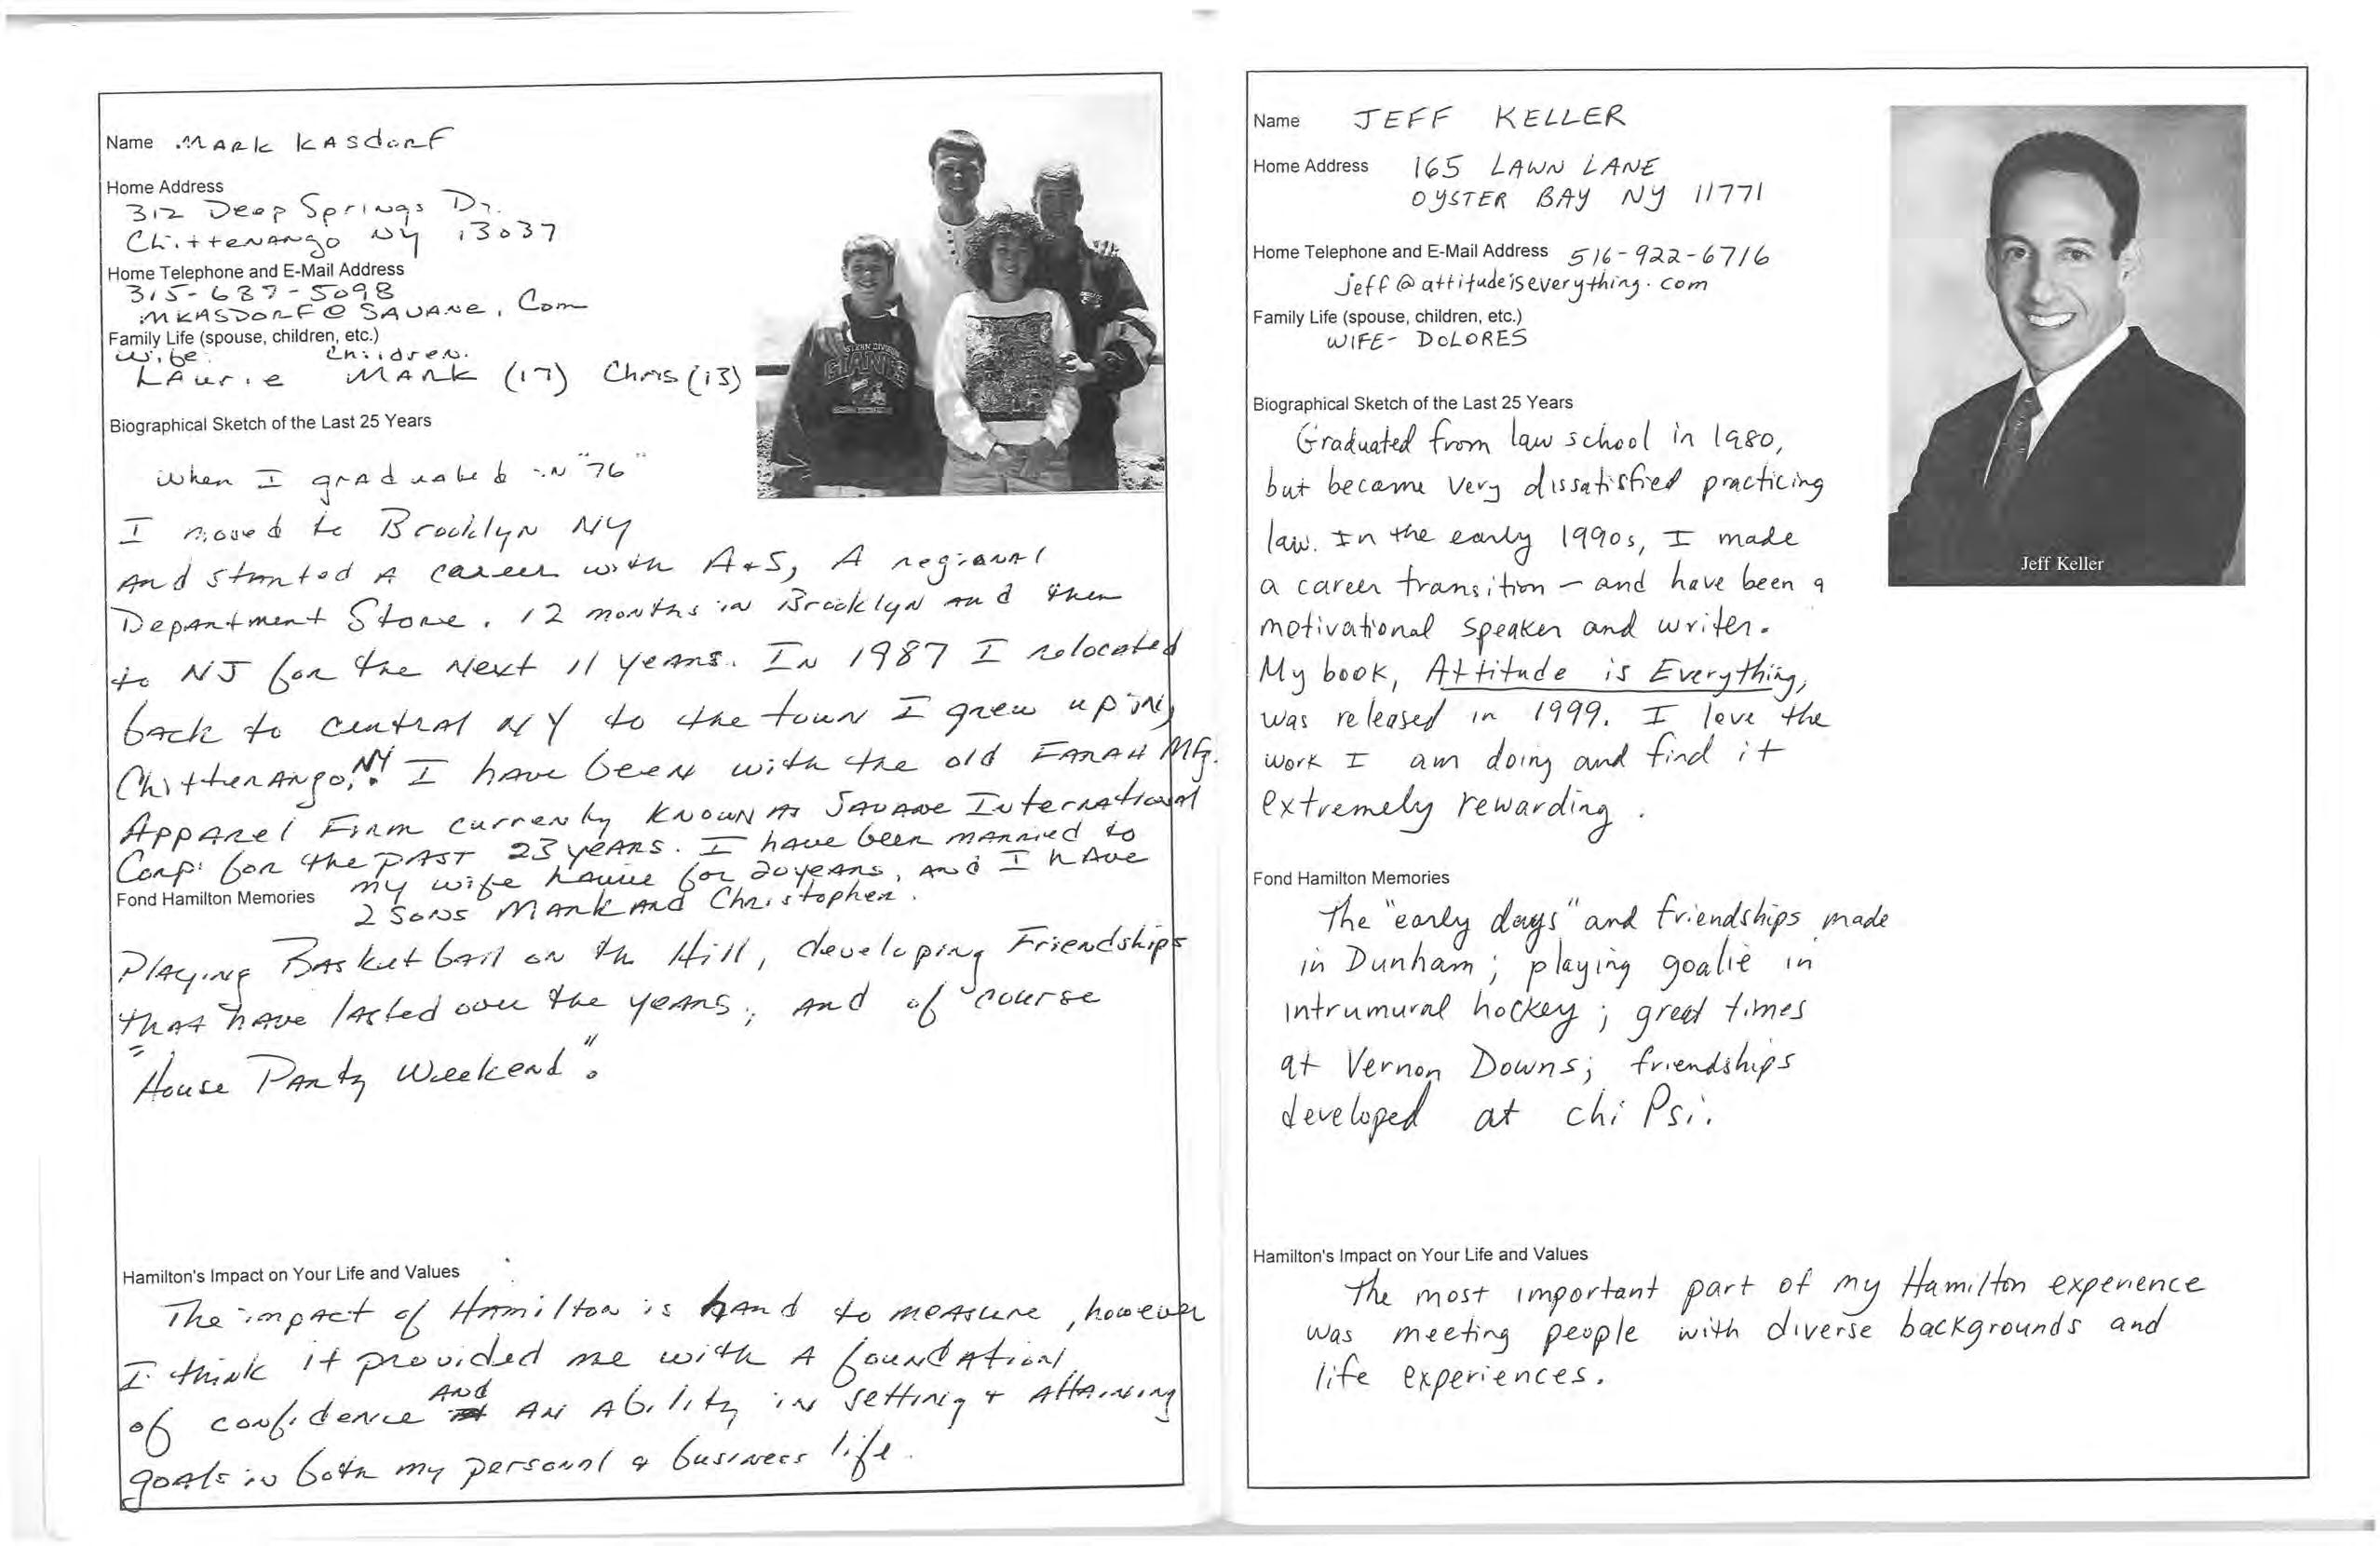 Name MARK KASdorF
Home Address
312 Deep Springs Dr.
Chittenango NY 13037
Home Telephone and E-Mail Address
315-637-5098
MKASDORF@SAVANE.Com
Family Life (spouse, children, etc.)
Wife: Children.
LAurie MARK (17) Chris (13)
Biographical Sketch of the Last 25 Years
When I graduated in "76"
I moved to Brooklyn NY
And started A career with A+S, A regional
Department Store. 12 months in Brooklyn and then
to NJ for the Next 11 years. In 1987 I relocated
back to central NY to the town I grew up in,
Chittenango, NY. I have been with the old FARAH Mfg.
Apparel Firm currently known as Savane International
Corp. for the past 23 years. I have been married to
my wife Laurie for 20 years, and I have
Fond Hamilton Memories 2 sons Mark and Christopher.
Playing Basketball on the Hill, developing Friendships
that have lasted over the years, and of course
"House Party Weekend".
Hamilton's Impact on Your Life and Values
The impact of Hamilton is hard to measure, however
I think it provided me with a foundation
of confidence and an ability in setting + attaining
goals in both my personal & business life.
Name JEFF KELLER
Home Address 165 LAWN LANE
OYSTER BAY NY 11771
Home Telephone and E-Mail Address 516-922-6716
jeff@attitudeiseverything.com
Family Life (spouse, children, etc.)
WIFE- DOLORES
Biographical Sketch of the Last 25 Years
Graduated from law school in 1980,
but became very dissatisfied practicing
law. In the early 1990s, I made
a career transition - and have been a
motivational speaker and writer.
My book, Attitude is Everything,
was released in 1999. I love the
work I am doing and find it
extremely rewarding.
Jeff Keller
Fond Hamilton Memories
The "early days" and friendships made
in Dunham; playing goalie in
intrumural hockey; great times
at Vernon Downs; friendships
developed at Chi Psi.
Hamilton's Impact on Your Life and Values
The most important part of my Hamilton experience
was meeting people with diverse backgrounds and
life experiences.